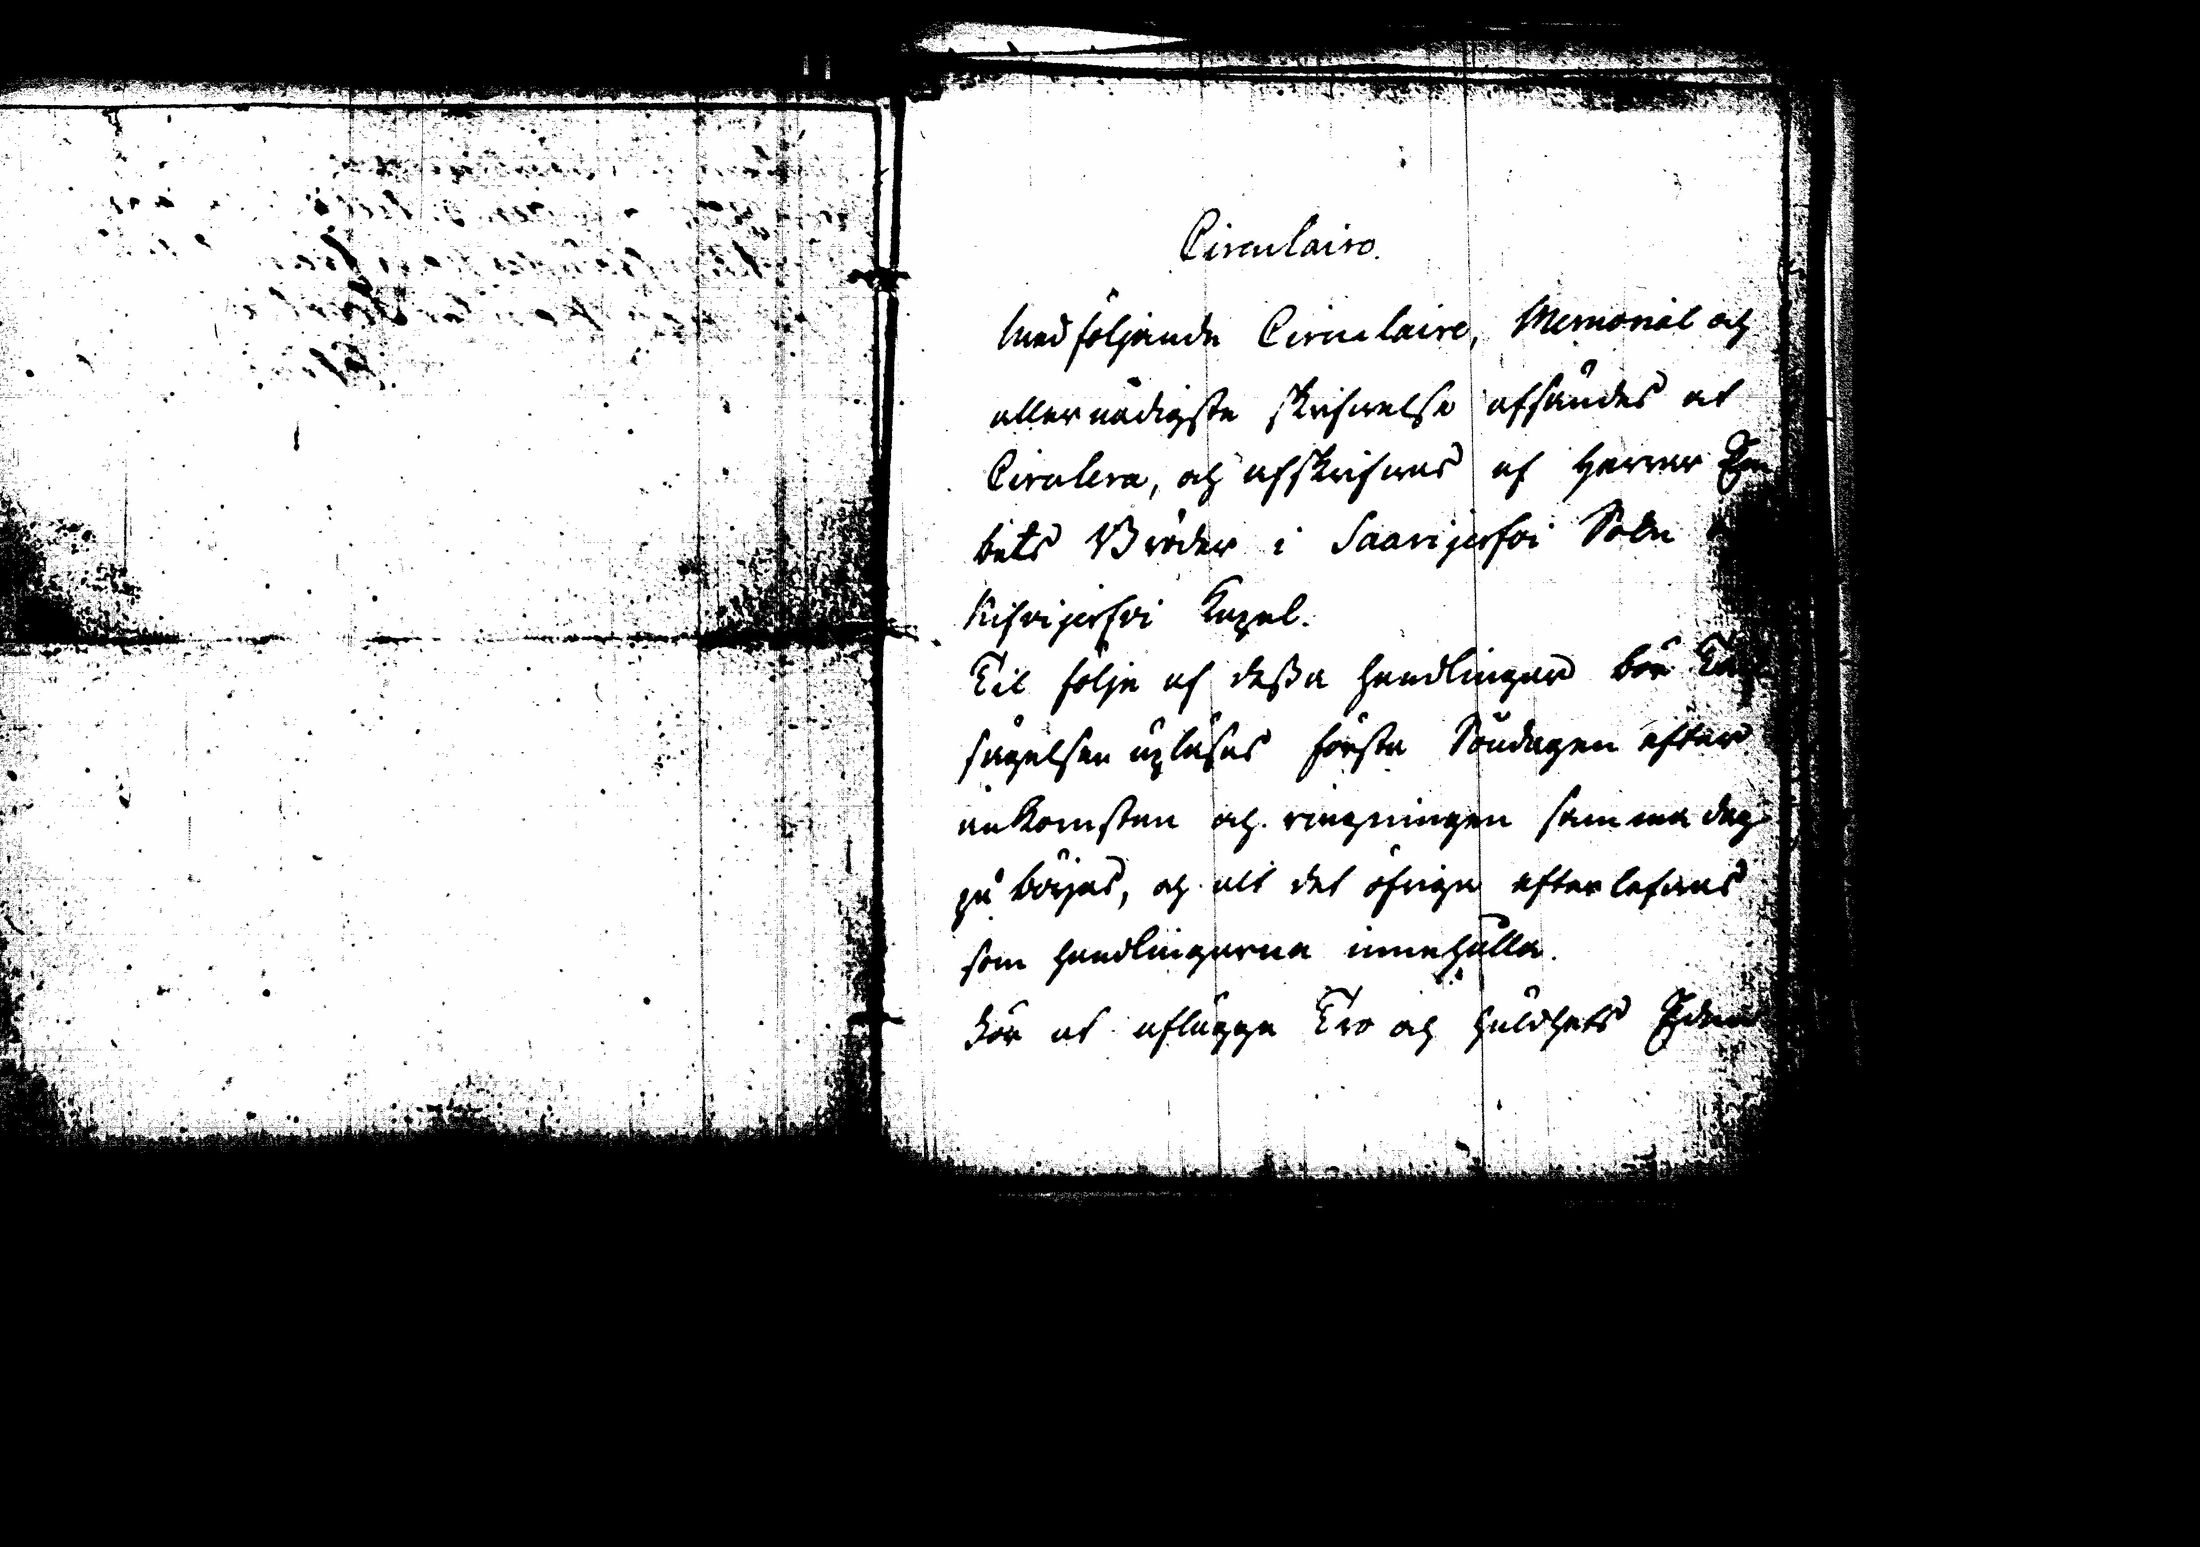 Circulaire.
Medföljande Circulaire, Memorial och
allernådigste skrifwelse afsändes at
Circulera, och afskrifwas af Herrar Em
bets Bröder i Saarijerfwi Sokn
Kifwijerfwi Capel.
Til följe af deßa handlingar bör Tack
sägelsen upläsas första Söndagen efter
ankomsten och ringningen samma dag
på börjas, och alt det öfriga efterlefwas
som handlingarna innehålla.
För at aflägga Tro och huldhets Eden